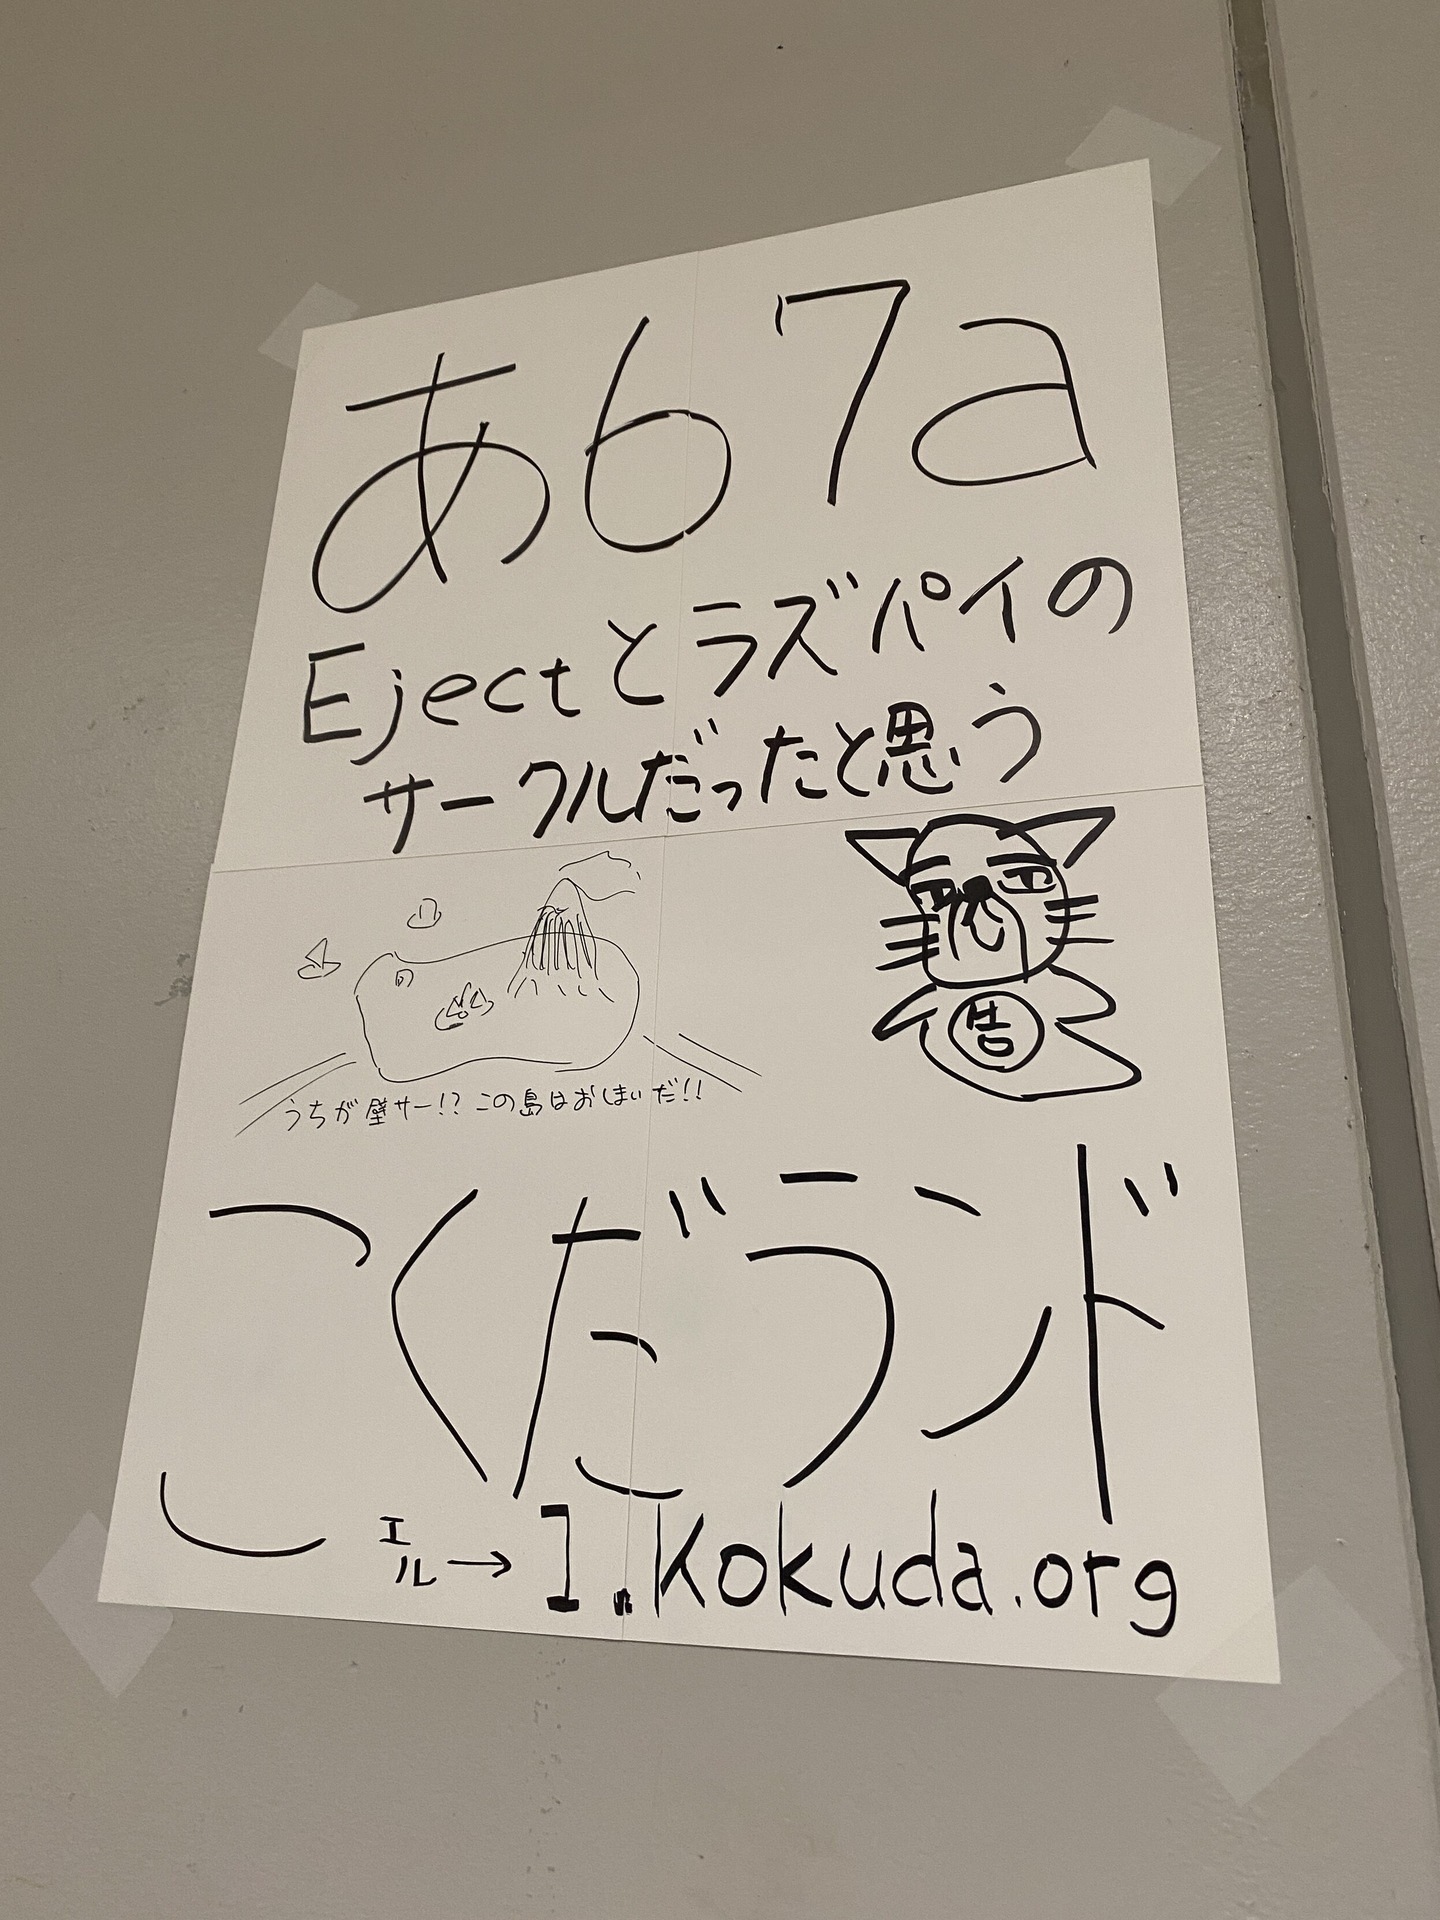 あ67a
Ejectとラズパイの
サークルだったと思う
うちが壁サー!? この島はおしまいだ!!
こくだランド
エル→l.kokuda.org